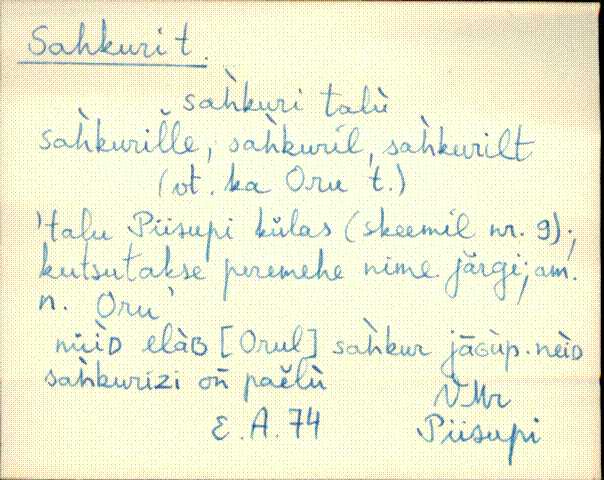 Sahkuri t.
sàhkuri talù
sàhkuriľľe, sàhkuril, sàhkurilt
(vt. ka Oru t.)
'talu Piisupi külas (skeemil nr. 9);
kutsutakse peremehe nime järgi; am.
n. Oru'
nüìD elàB [Orul] sàhkur jāGùp. neìD
sàhkurizi oň paĕlù
VMr
E. A. 74 Piisupi